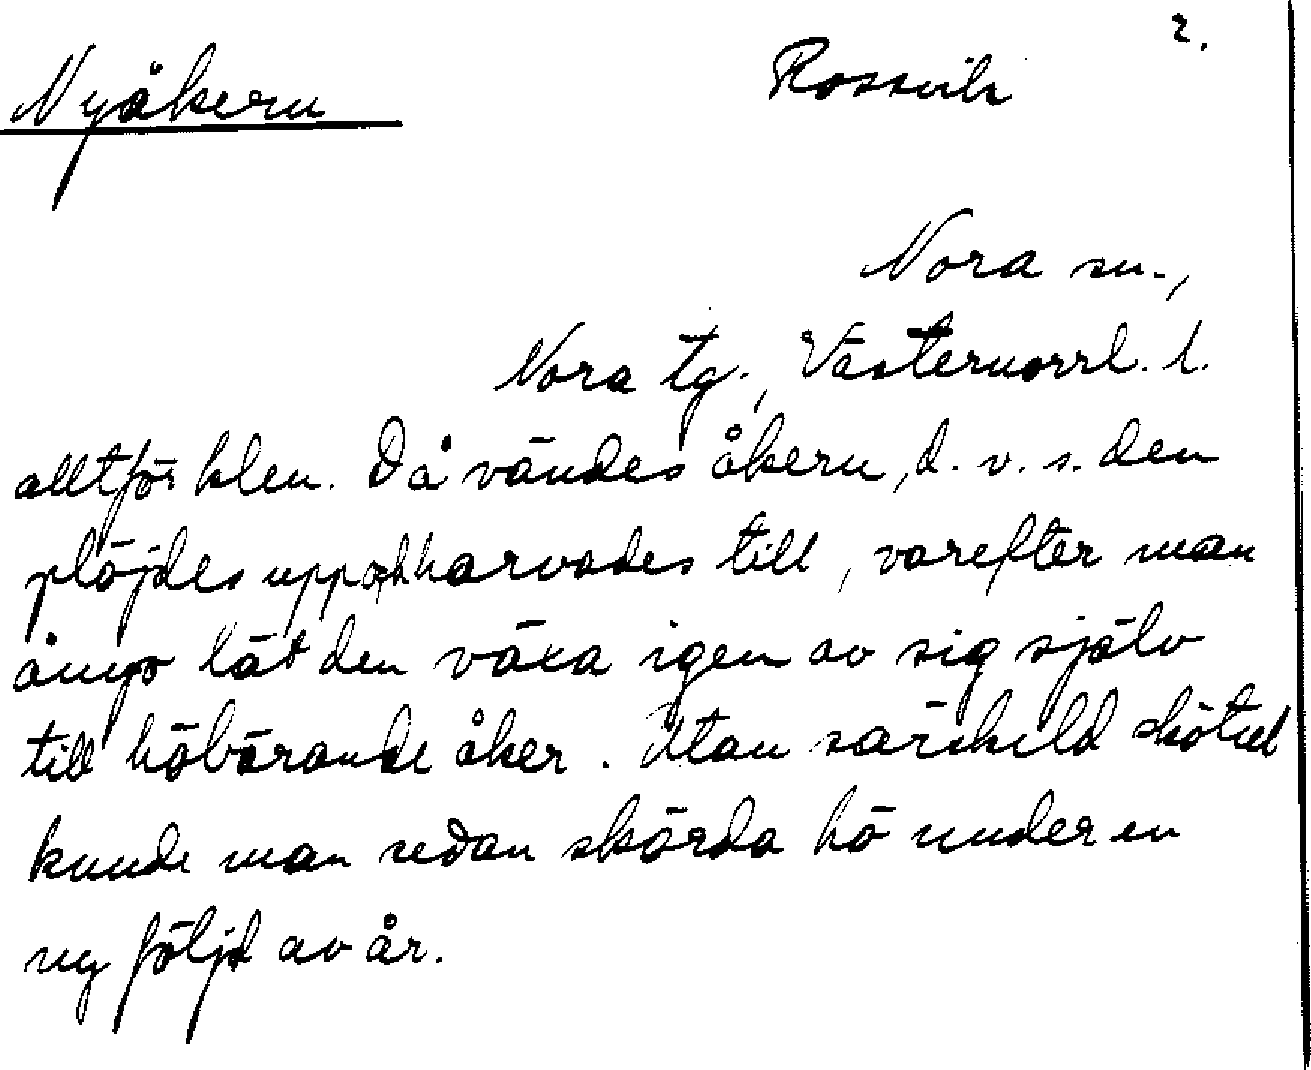 2.
Nyåkern Rossvik
Nora sn.,
Nora tg., Västernorrl. l.
alltför klen. Då vändes åkern, d. v. s. den
plöjdes upp och harvades till, varefter man
ånyo lät den växa igen av sig själv
till höbärande åker. Utan särskild skötsel
kunde man sedan skörda hö under en
ny följd av år.